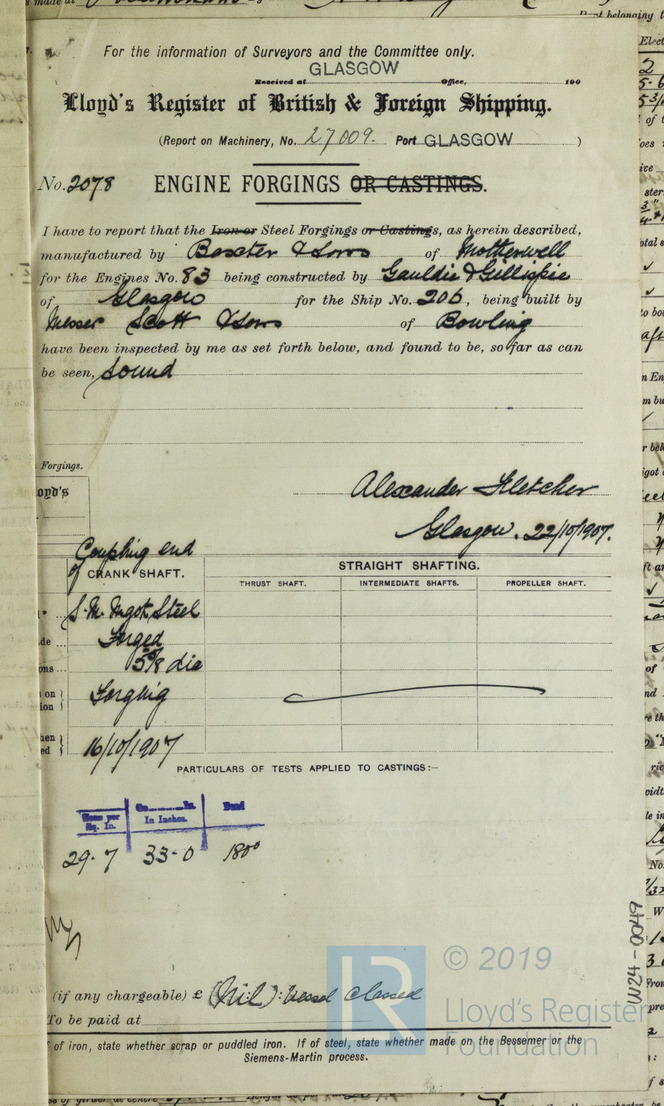 For the information of Surveyors and the Committee only.
GLASGOW
Received at Office, 190
Lloyd's Register of British & Foreign Shipping.
(Report on Machinery, No. 27009. Port GLASGOW )
No. 2078 ENGINE FORGINGS OR CASTINGS.
I have to report that the Iron or Steel Forgings or Castings, as herein described,
manufactured by Baxter & Sons of Motherwell
for the Engines No. 83 being constructed by Gauldie & Gillispie
of Glasgow for the Ship No. 206, being built by
Messer Scott & Sons of Bowling
have been inspected by me as set forth below, and found to be, so far as can
be seen, sound
Forgings.
oyd's
Alexander Fletcher
Glasgow. 22/10/1907.
Coupling end
of CRANK SHAFT.
STRAIGHT SHAFTING.
THRUST SHAFT. INTERMEDIATE SHAFTS. PROPELLER SHAFT.
S. M. Ingot Steel
Forged
5⅝ dia
Forging
16/10/1907
PARTICULARS OF TESTS APPLIED TO CASTINGS:—
Tons per Sq. In. On In. In Inches. Bend
29.7 33-0 180°
(if any chargeable) £ (Nil): Vessel classed
To be paid at
of iron, state whether scrap or puddled iron. If of steel, state whether made on the Bessemer or the
Siemens-Martin process.
W24-0049
© 2019
Lloyd's Register
Foundation